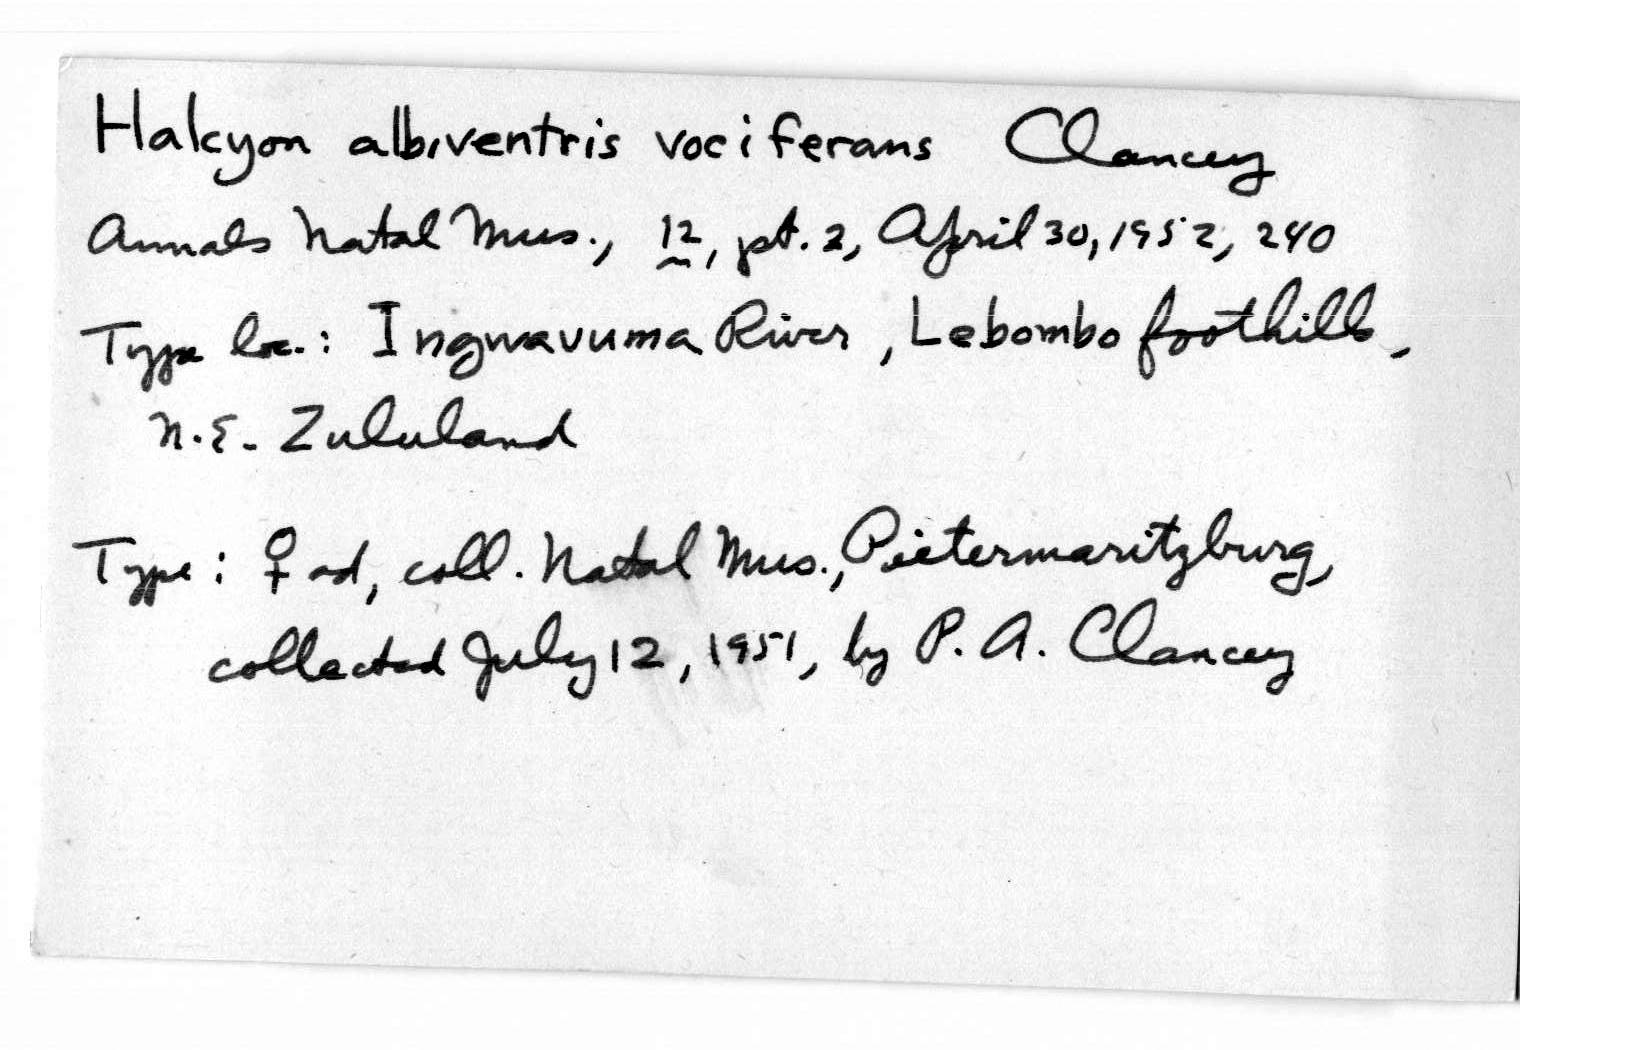 Halcyon albiventris vociferans Clancey
Annals Natal Mus., 12, pt. 2, April 30, 1952, 240
Type loc.: Ingwavuma River, Lebombo foothills,
N.E. Zululand
Type: ♀ ad, coll. Natal Mus., Pietermaritzburg,
collected July 12, 1951, by P. A. Clancey